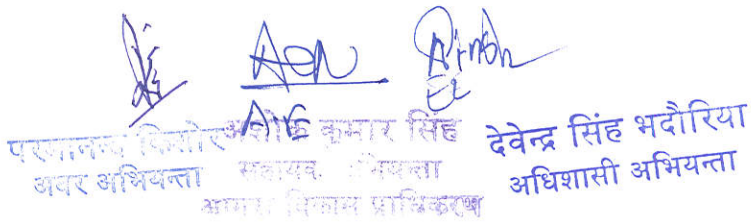 परमानन्द किशोर
अवर अभियन्ता
अशोक कुमार सिंह
सहायक अभियन्ता
आगरा विकास प्राधिकरण
देवेन्द्र सिंह भदौरिया
अधिशासी अभियन्ता